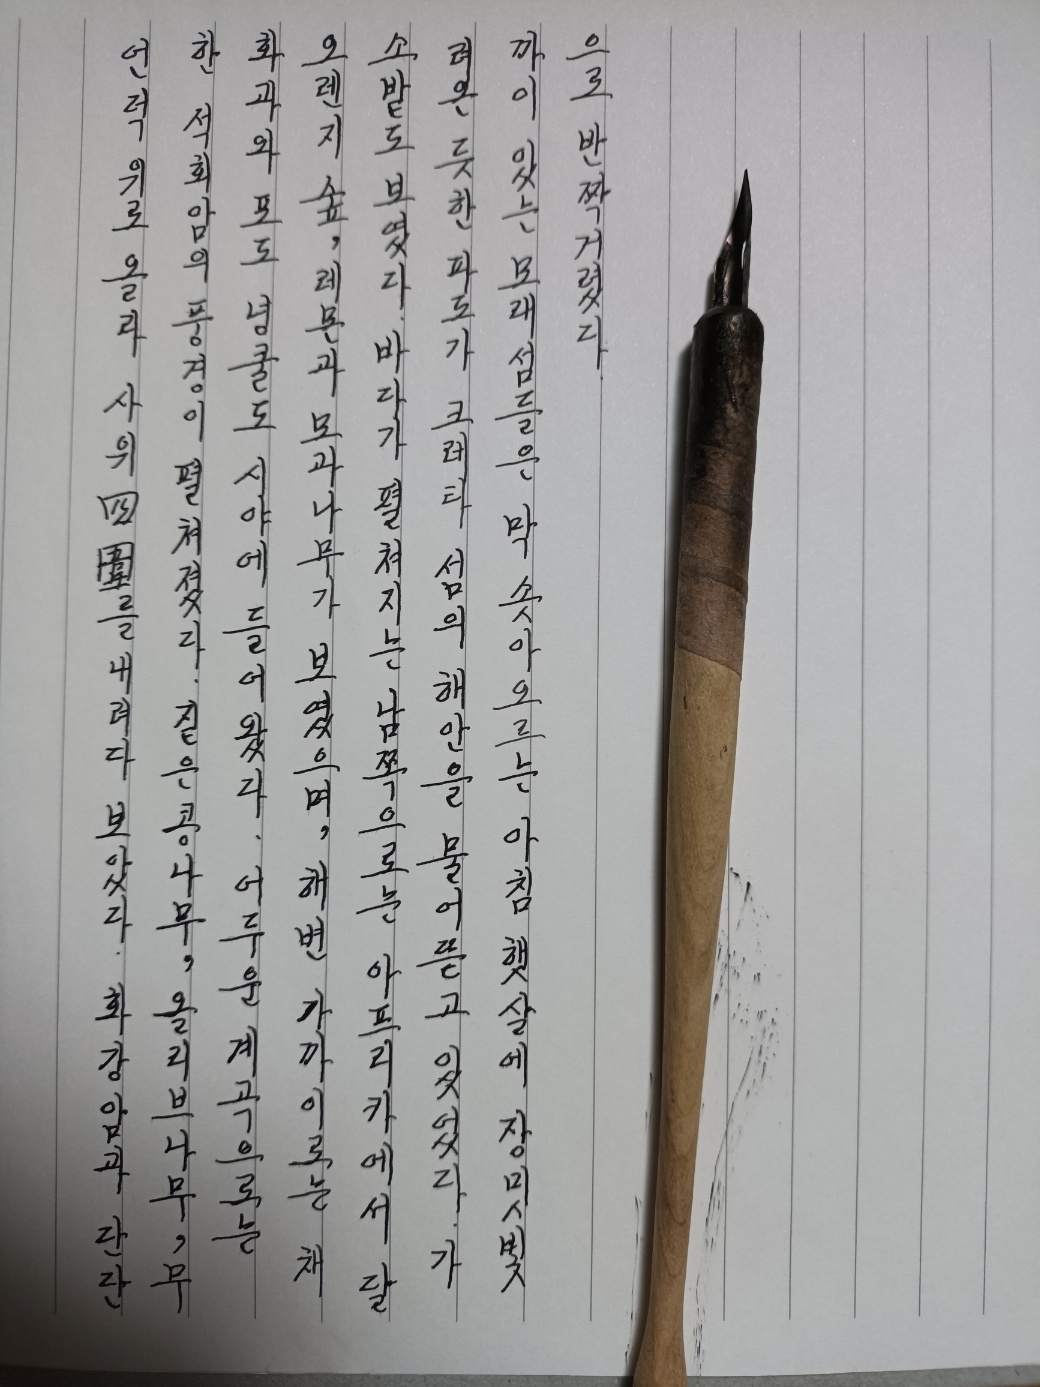 언덕 위로 올라 사위四圍를 내려다 보았다. 화강암과 단단
한 석회암의 풍경이 펼쳐졌다. 짙은 콩나무, 올리브나무, 무
화과와 포도 넝쿨도 시야에 들어왔다. 어두운 계곡으로는
오렌지 숲, 레몬과 모과나무가 보였으며, 해변 가까이로는 채
소밭도 보였다. 바다가 펼쳐지는 남쪽으로는 아프리카에서 달
려온 듯한 파도가 크레타 섬의 해안을 물어뜯고 있었다. 가
까이 있는 모래섬들은 막 솟아오르는 아침 햇살에 장밋빛
으로 반짝거렸다.